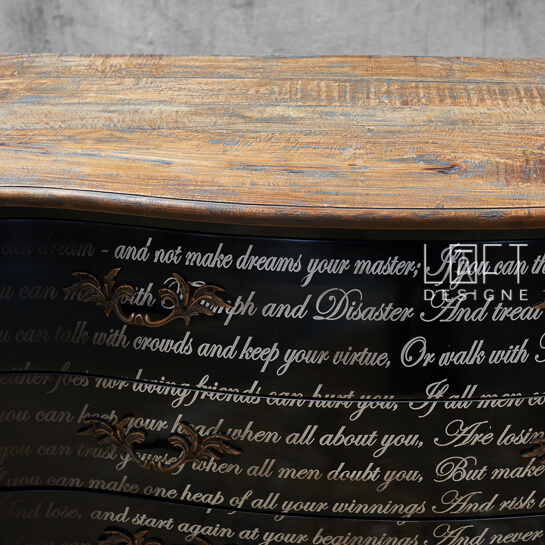 can dream - and not make dreams your master; If you can th
LOFT
DESIGNE
u can m with ph and Disaster And treat
u can talk with crowds and keep your virtue, Or walk with
either foes nor loving friends can hurt you, If all men co
ou can keep your head when all about you, Are losin
ou can trust yourself when all men doubt you, But make
you can make one heap of all your winnings And risk
And lose, and start again at your beginnings And never